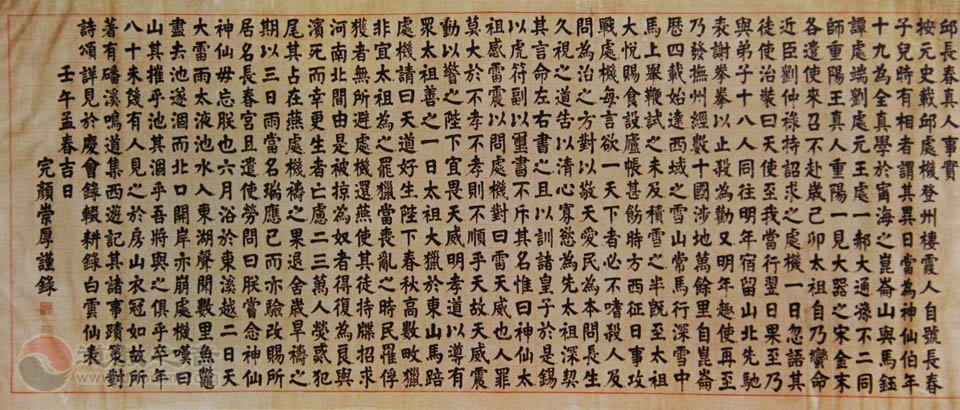 邱長春真人事實
按元史載邱處機登州棲霞人自號長春
子兒時有相者謂其異日當為神仙伯年
十九為全真學於甯海之崑崙山與馬鈺
譚處端劉處元王處一郝大通孫不二同
師重陽王真人重陽一見大器之宋金末
各遣使來召不赴歲己卯太祖自乃蠻命
近臣劉仲祿特詔求之處機一日忽語其
徒使治裝曰天使至我當行翌日果至乃
與弟子十八人同往明年宿留山北先馳
表謝拳拳以止殺為勸又明年趣使再至
乃發撫州經數十國涉地萬餘里自崑崙
歷四載始達西域之雪山常馬行深雪中
馬上舉鞭試之未及積雪之半既至太祖
大悅賜食設廬帳甚飭時方西征日事攻
戰處機每言欲一天下者必不嗜殺人及
問為治之方對以敬天愛民為本問長生
久視之道告以清心寡慾為先太祖深契
其言命左右書之且以訓諸皇子於是錫
以虎符副以璽書不斥其名惟曰神仙太
祖感雷震以問處機對曰雷天威也人罪
莫大於不孝不孝則不順乎天故天威震
動以警之陛下宜畏天威明孝道以導有
眾太祖善之一日太祖大獵於東山馬踣
處機請曰天道好生陛下春秋高數畋獵
非宜太祖為之罷獵當喪亂之時民罹俘
獲者無所避處機還燕使其徒持牒招求
河南北間由是被掠為奴者得復為良與
濱死而幸更生者亡慮二三萬人熒惑犯
尾其占在燕處機禱之果退舍歲旱禱之
期以三日雨當名瑞應已而亦驗改賜所
居名長春宮且遣使勞問曰朕嘗念神仙
神仙毋忘朕也六月浴於東溪越二日天
大雷雨太液池水入東湖聲聞數里魚鼈
盡去池遂涸而北口開岸亦崩處機嘆曰
山其摧乎池其涸乎吾將與之俱乎卒年
八十未幾有人見之於房山衣冠如故所
著有磻溪鳴道集西遊記其諸事蹟策對
詩頌詳見於慶會錄輟耕錄白雲仙表
壬午孟春吉日
完顏崇厚謹錄